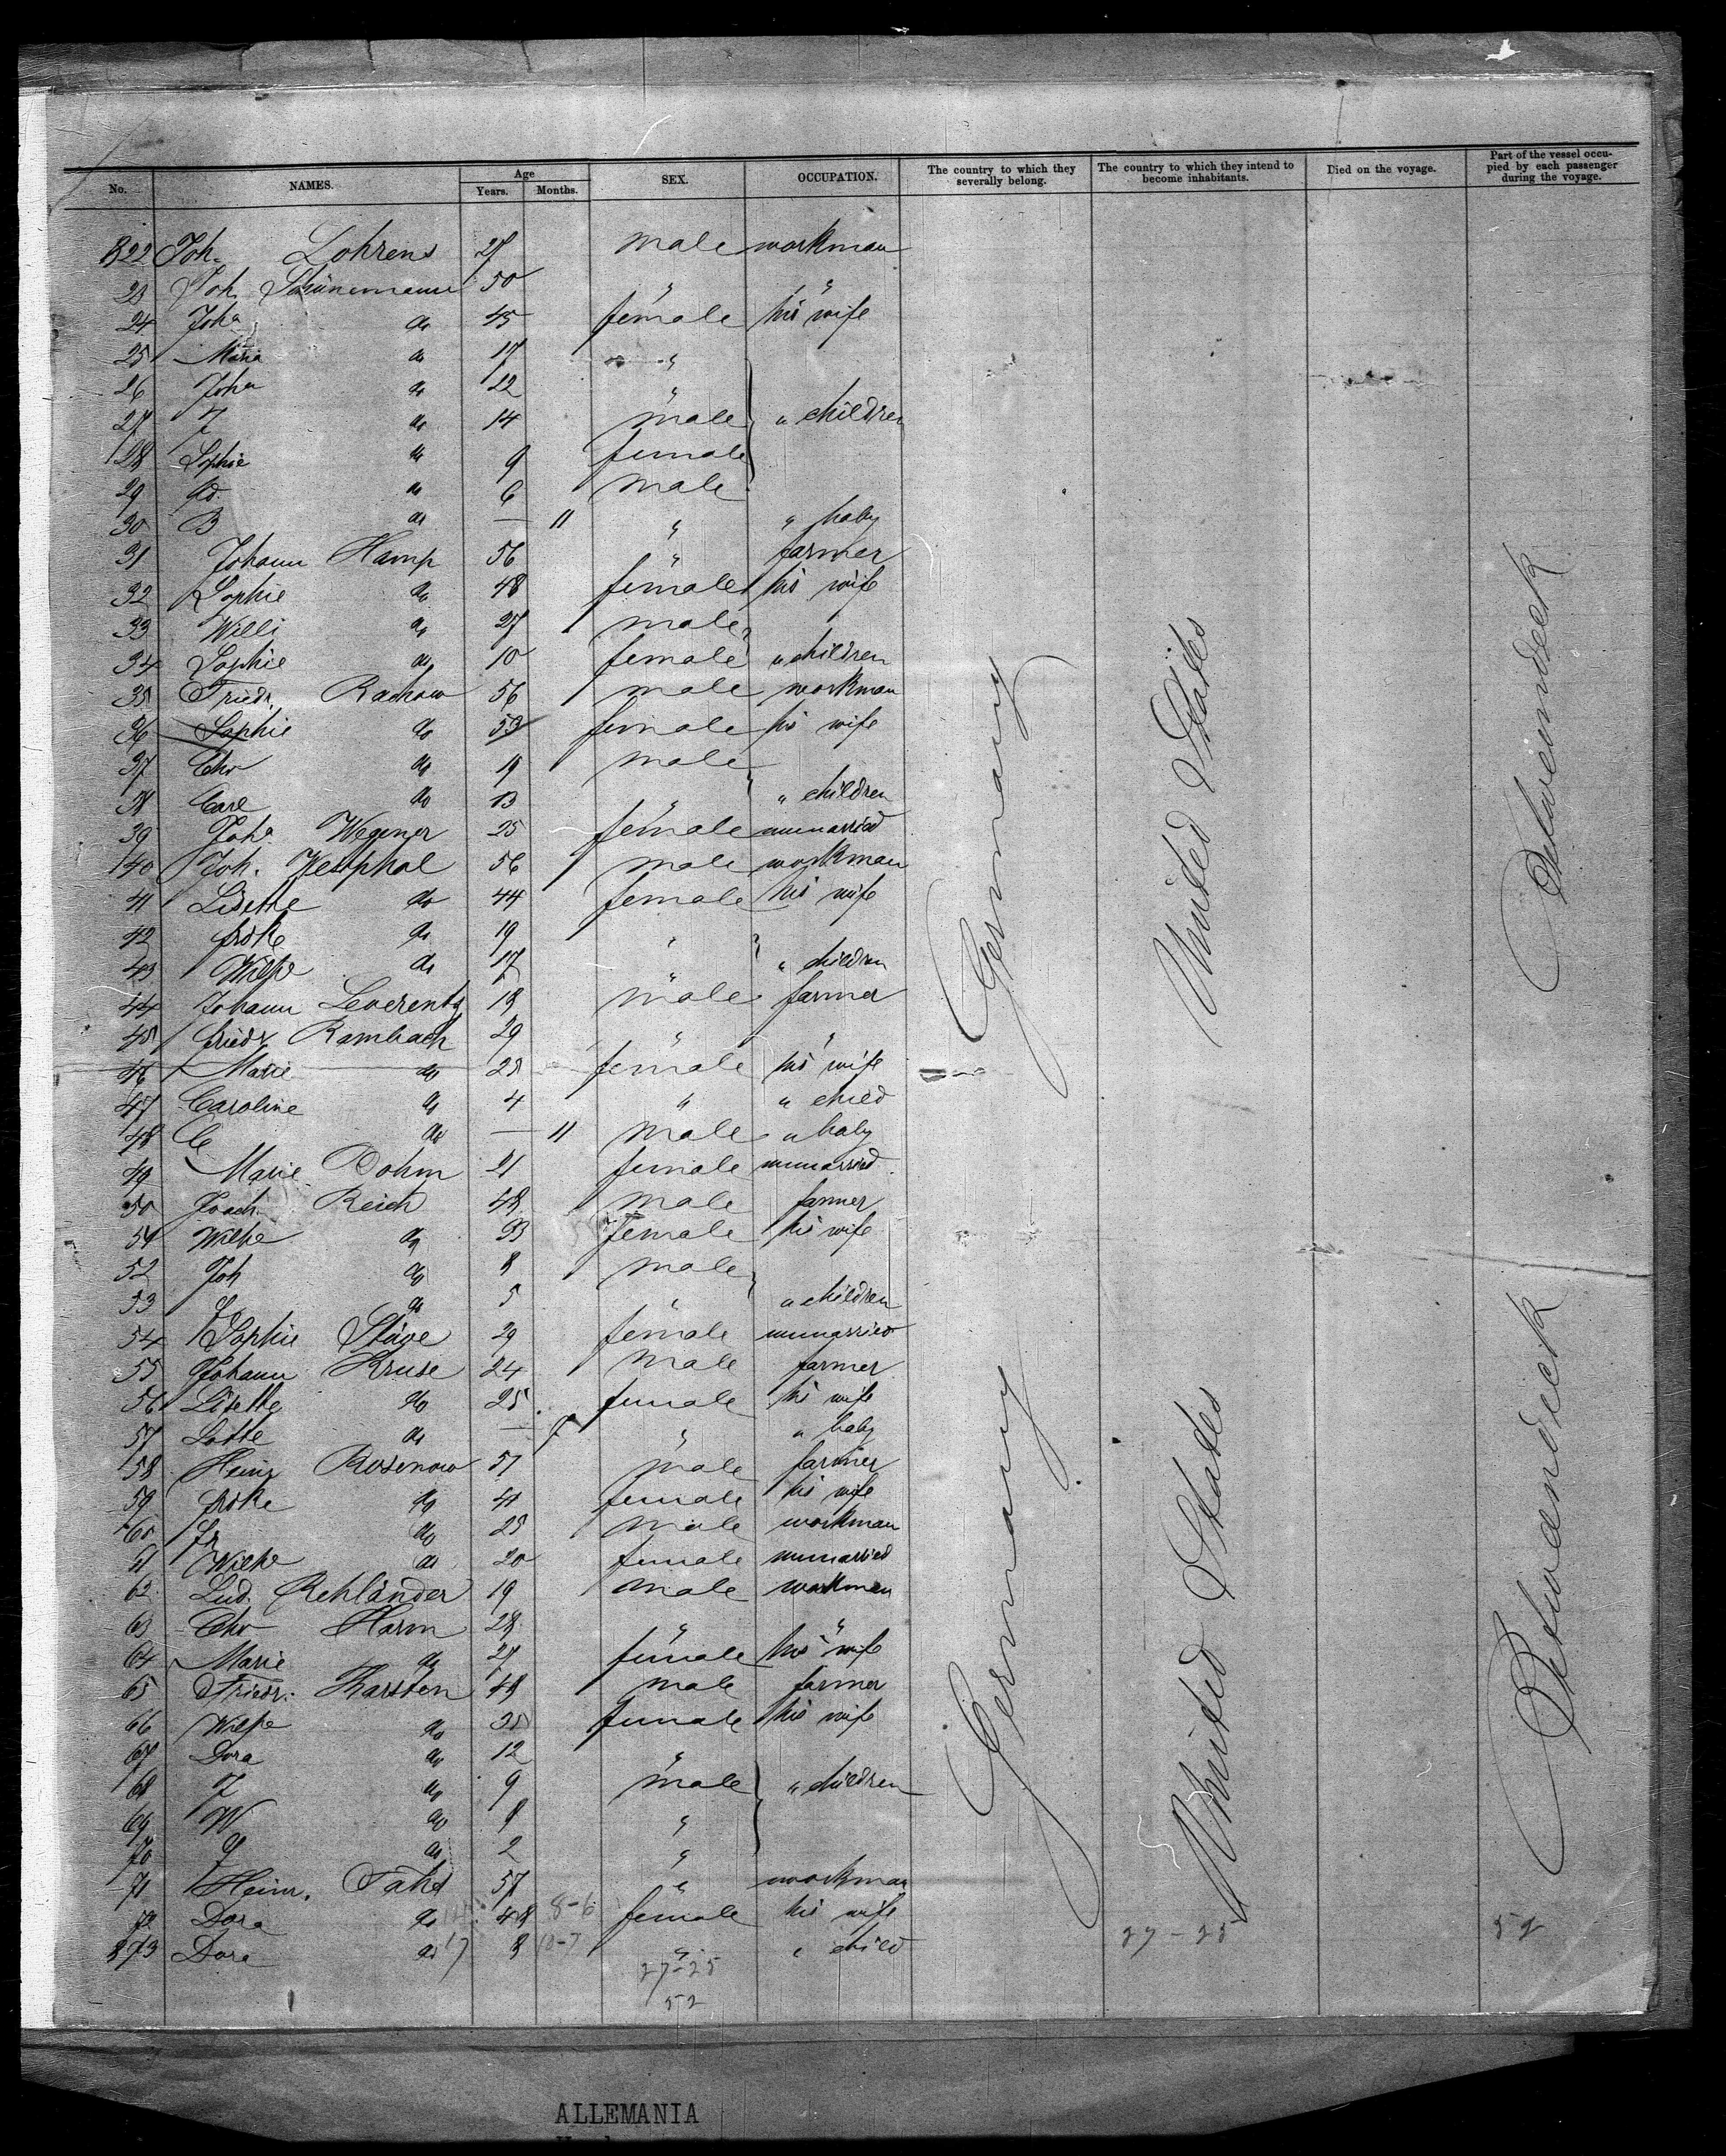 No. NAMES. Age Years. Months. SEX. OCCUPATION. The country to which they severally belong. The country to which they intend to become inhabitants. Died on the voyage. Part of the vessel occupied by each passenger during the voyage.
822 Joh. Lohrens 27 male workman
23 Joh. Schünemann 50 " " "
24 Joha do 45 female his wife
25 Maria do 17 "
26 Joha do 22 "
27 J do 14 male " children
128 Sophie do 9 female
29 do 6 male
30 B do — 11 " " baby
31 Johann Hamp 56 " farmer
32 Sophie do 48 female his wife
33 Willi do 27 male
34 Sophie do 10 female " children
35 Friedr. Rachow 56 male workman
36 Sophie do 53 female his wife
37 Chr do 19 male
38 Carl do 13 " " children
39 Joha Wegener 25 female unmarried
140 Joh. Westphal 56 male workman
41 Lisette do 44 female his wife
42 do 19 "
43 Wilhe do 17 " " children
44 Johann Leverentz 18 male farmer
45 Friedr Rambach 29 " "
46 Marie do 25 female his wife
47 Caroline do 4 " " child
48 C do — 11 male " baby
49 Marie Dohm 21 female unmarried
50 Joach. Reich 48 male farmer
51 Wilhe do 33 female his wife
52 Joh do 8 male
53 do 5 " " children
54 Sophie Stüve 29 female unmarried
55 Johann Kruse 24 male farmer
56 Lisette do 25 female his wife
57 Lotte do — " " baby
158 Heinr Rosenow 51 male farmer
59 do 41 female his wife
60 Fr do 25 male workman
61 Wilhe do 20 female unmarried
62 Lud. Rehländer 19 male workman
63 Chr Harm 28 " "
64 Marie do 27 female his wife
65 Friedr. Karsten 48 male farmer
66 Wilhe do 35 female his wife
67 Dora do 12 "
68 J do 9 male " children
69 W do 8 "
70 do 2 "
71 Heinr. 57 " workman
72 Dora do 48 8-6 female his wife
873 Dora do 17 8 10-7 " " child
Germany United States Betweendeck
Germany United States Betweendeck
27-25 27-25 52
52
ALLEMANIA